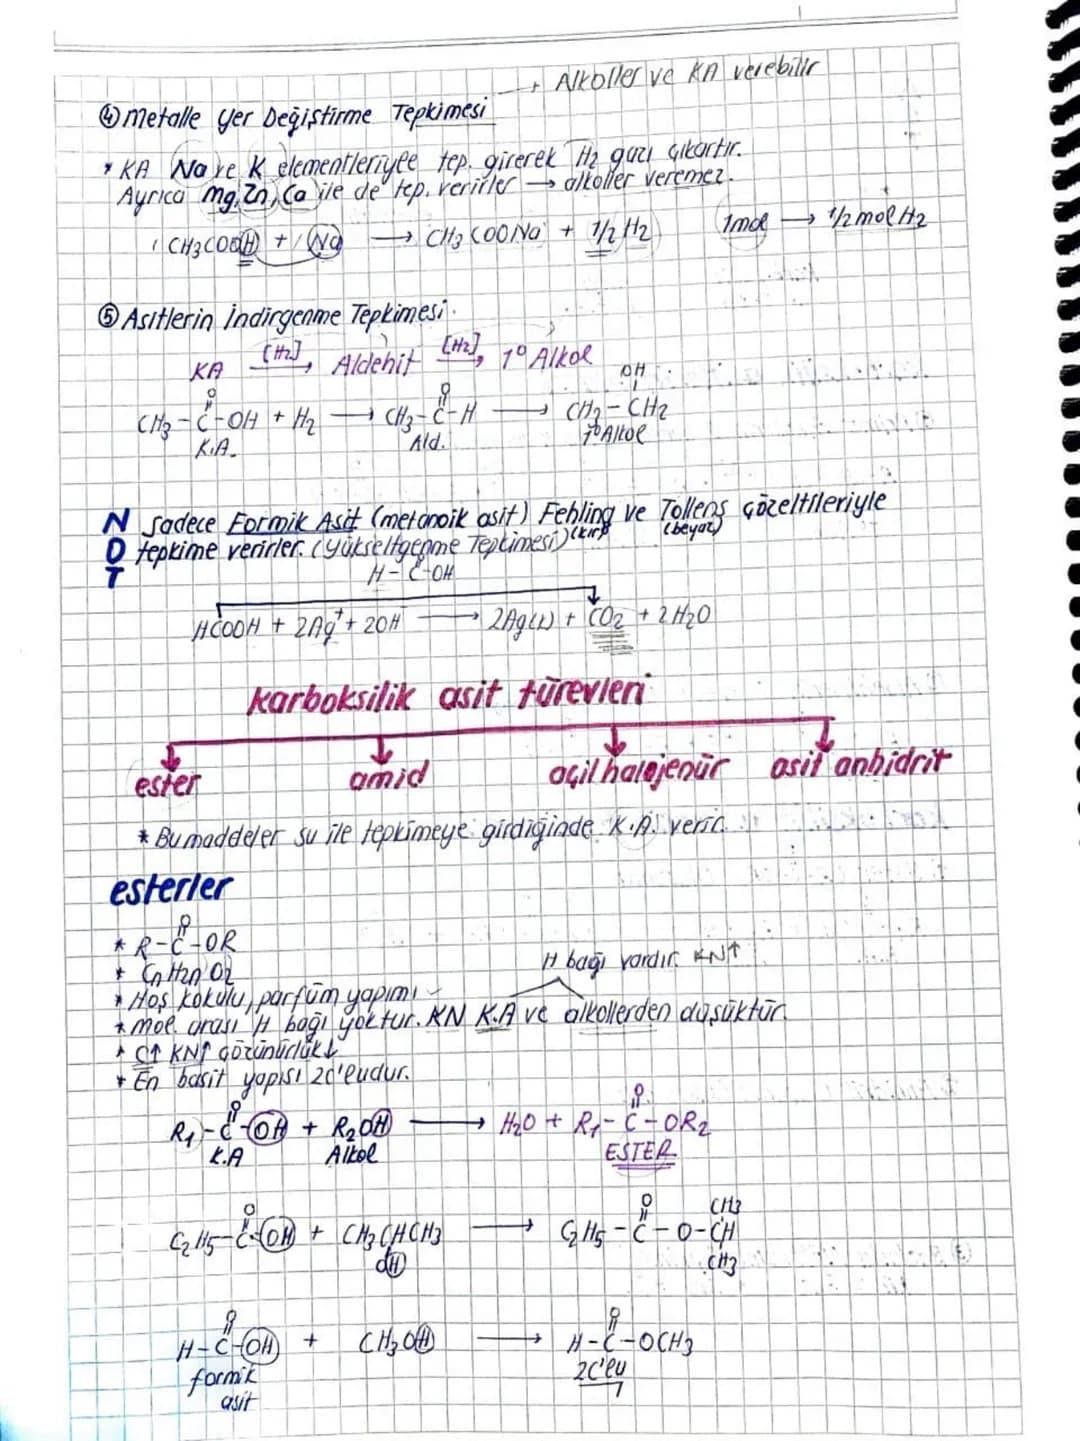 → Alkoller ve KA verebilir
④ Metalle Yer Değiştirme Tepkimesi
* KA Na ve K elementleriyle tep. girerek H2 gazı çıkartır.
Ayrıca Mg, Zn, Ca ile de tep. verirler → alkoller veremez.
1 CH3COOH + 1 Na → CH3COONa + 1/2 H2 1mol → 1/2 mol H2
⑤ Asitlerin İndirgenme Tepkimesi.
KA [H2]→ Aldehit [H2]→ 1° Alkol
O O OH
CH3-C-OH + H2 → CH3-C-H → CH3-CH2
K.A. Ald. 1° Alkol
NOT
Sadece Formik Asit (metanoik asit) Fehling ve Tollens çözeltileriyle
tepkime verirler. (Yükseltgenme Tepkimesi) (beyaz)
H-C-OH
HCOOH + 2Ag+ + 2OH → 2Ag(s) + CO2 + 2H2O
karboksilik asit türevleri
ester amid açil halojenür asit anhidrit
* Bu maddeler su ile tepkimeye girdiğinde K.A. verir.
esterler
O
* R-C-OR
* CnH2nO2
H bağı vardır. KN↑
* Hoş kokulu, parfüm yapımı
* Mol. arası H bağı yoktur. KN K.A ve alkollerden düşüktür.
* C↑ KN↑ Çözünürlük↓
* En basit yapısı 2C'ludur.
O O
R1-C-OH + R2OH → H2O + R1-C-OR2
K.A Alkol ESTER
O O CH3
C2H5-C-OH + CH3CHCH3 → C2H5-C-O-CH
OH CH3
O O
H-C-OH + CH3OH → H-C-OCH3
formik 2C'lu
asit